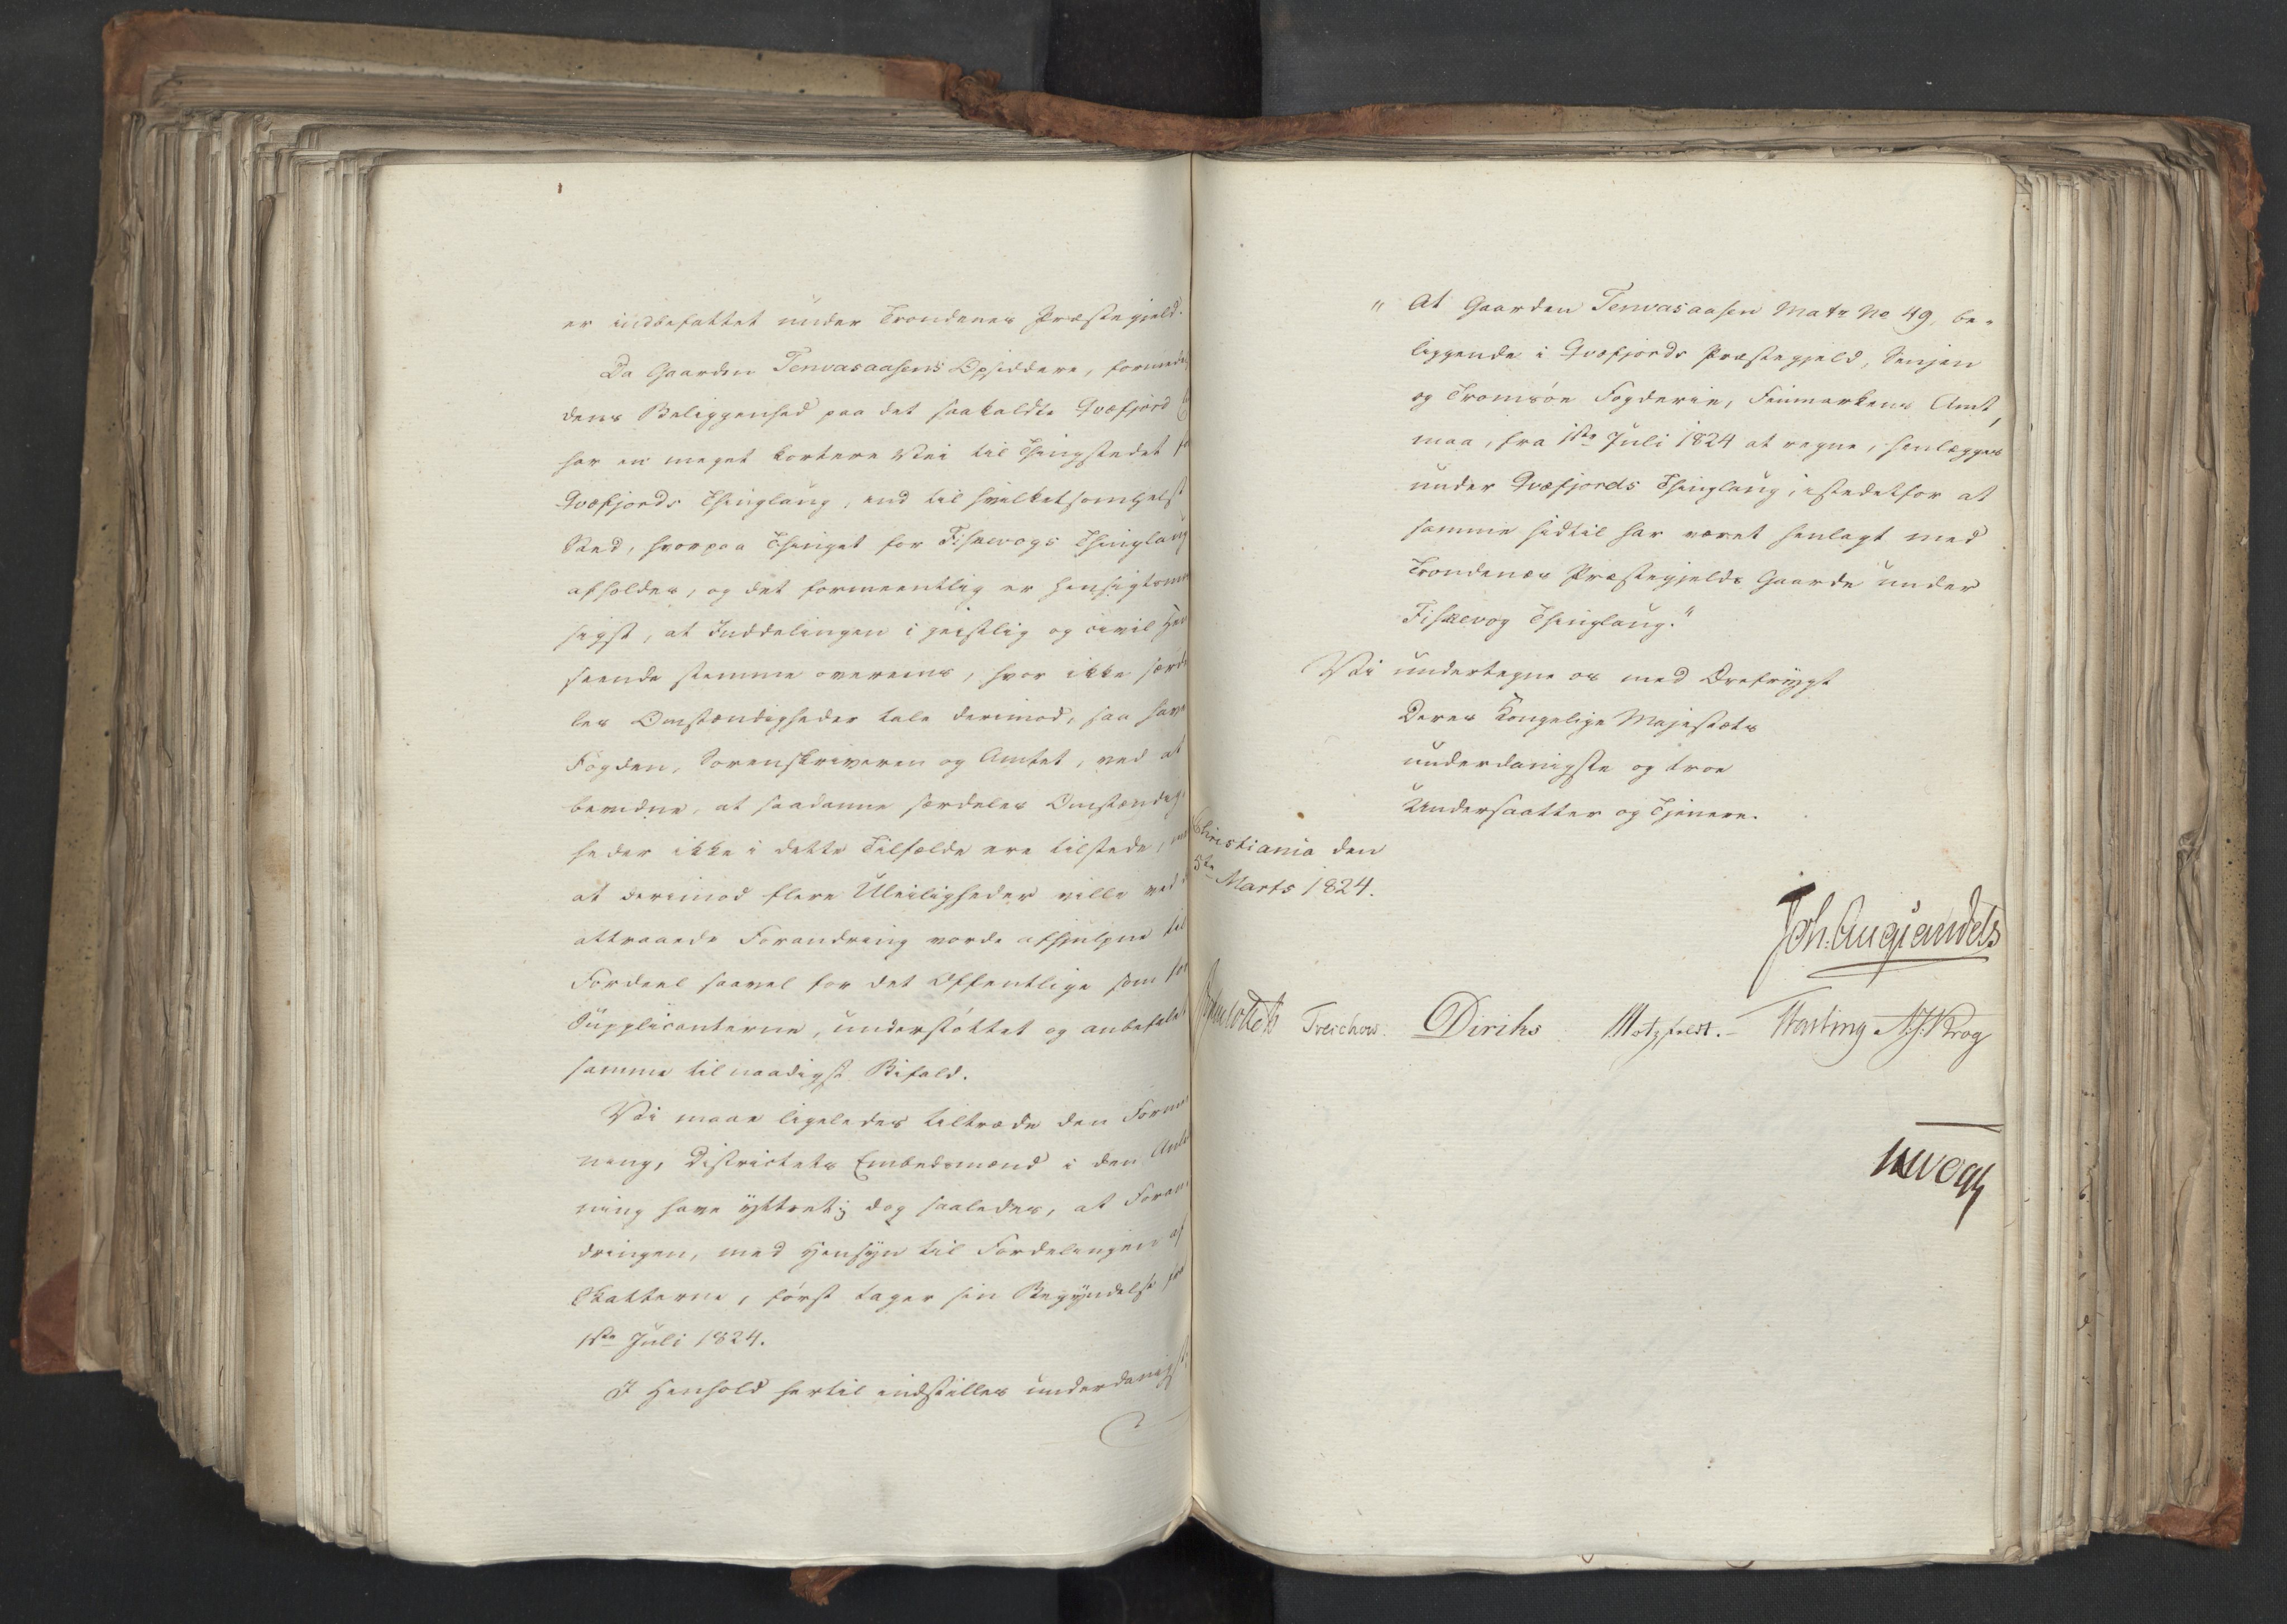 er indbefattet under Trondenes Præstegjeld.
Da Gaarden Tenvasaasens Opsiddere, formede
dens Beliggenhed paa det saakaldte Qvæfjord
har en meget kortere Vei til Thingstedet for
Qvæfjords Thinglaug, end til hvilketsomhelst
Sted, hvorpaa Thinget for Fiskevogs Thinglaug
afholdes, og det formeentlig er hensigtsmæs
sigst, at Inddelingen i geistlig og civil Hen
seende stemme overeens, hvor ikke særde
les Omstændigheder tale derimod, saa have
Fogden, Sorenskriveren og Amtet, ved at
bevidne, at saadanne særdeles Omstændig
heder ikke i dette Tilfælde ere tilstede,
at derimod flere Uleiligheder ville ved
attraaede Forandring vorde afhjulpne til
Fordeel saavel for det Offentlige som for
Supplicanterne, understøttet og anbefalet
samme til naadigst Bifald.
Vi maae ligeledes tiltræde den Forme
ning, Districtets Embedsmænd i den Anled
ning have yttret; dog saaledes, at Foran
dringen, med Hensyn til Fordelingen af
Skatterne, først tager sin Begyndelse fra
1ste Juli 1824.
I Henhold hertil indstilles underdanigst:
" At Gaarden Tenvasaasen Matr No 49, be-
liggende i Qvæfjords Præstegjeld, Senjen
og Tromsøe Fogderie, Finmarkens Amt,
maa, fra 1ste Juli 1824 at regne, henlægges
under Qvæfjords Thinglaug, istedetfor at
samme hidtil har været henlagt med
Trondenes Præstegjelds Gaarde under
Fiskevog Thinglaug."
Vi undertegne os med Ærefrygt
Deres Kongelige Majestæts
underdanigste og troe
Undersaatter og Tjenere.
Christiania den
5te Marts 1824.
Joh. Aug. Sandels
Treschow. Diriks Motzfeldt. Fasting A:J:Krog